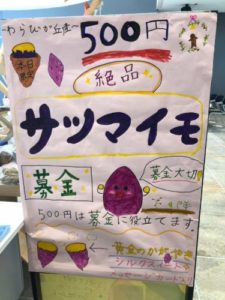 〜わらびが丘産〜
500円
本日限定
絶品
サツマイモ
募金
募金大切!
500円は募金に役立てます。
黄金のかがやき
シルクスイートを